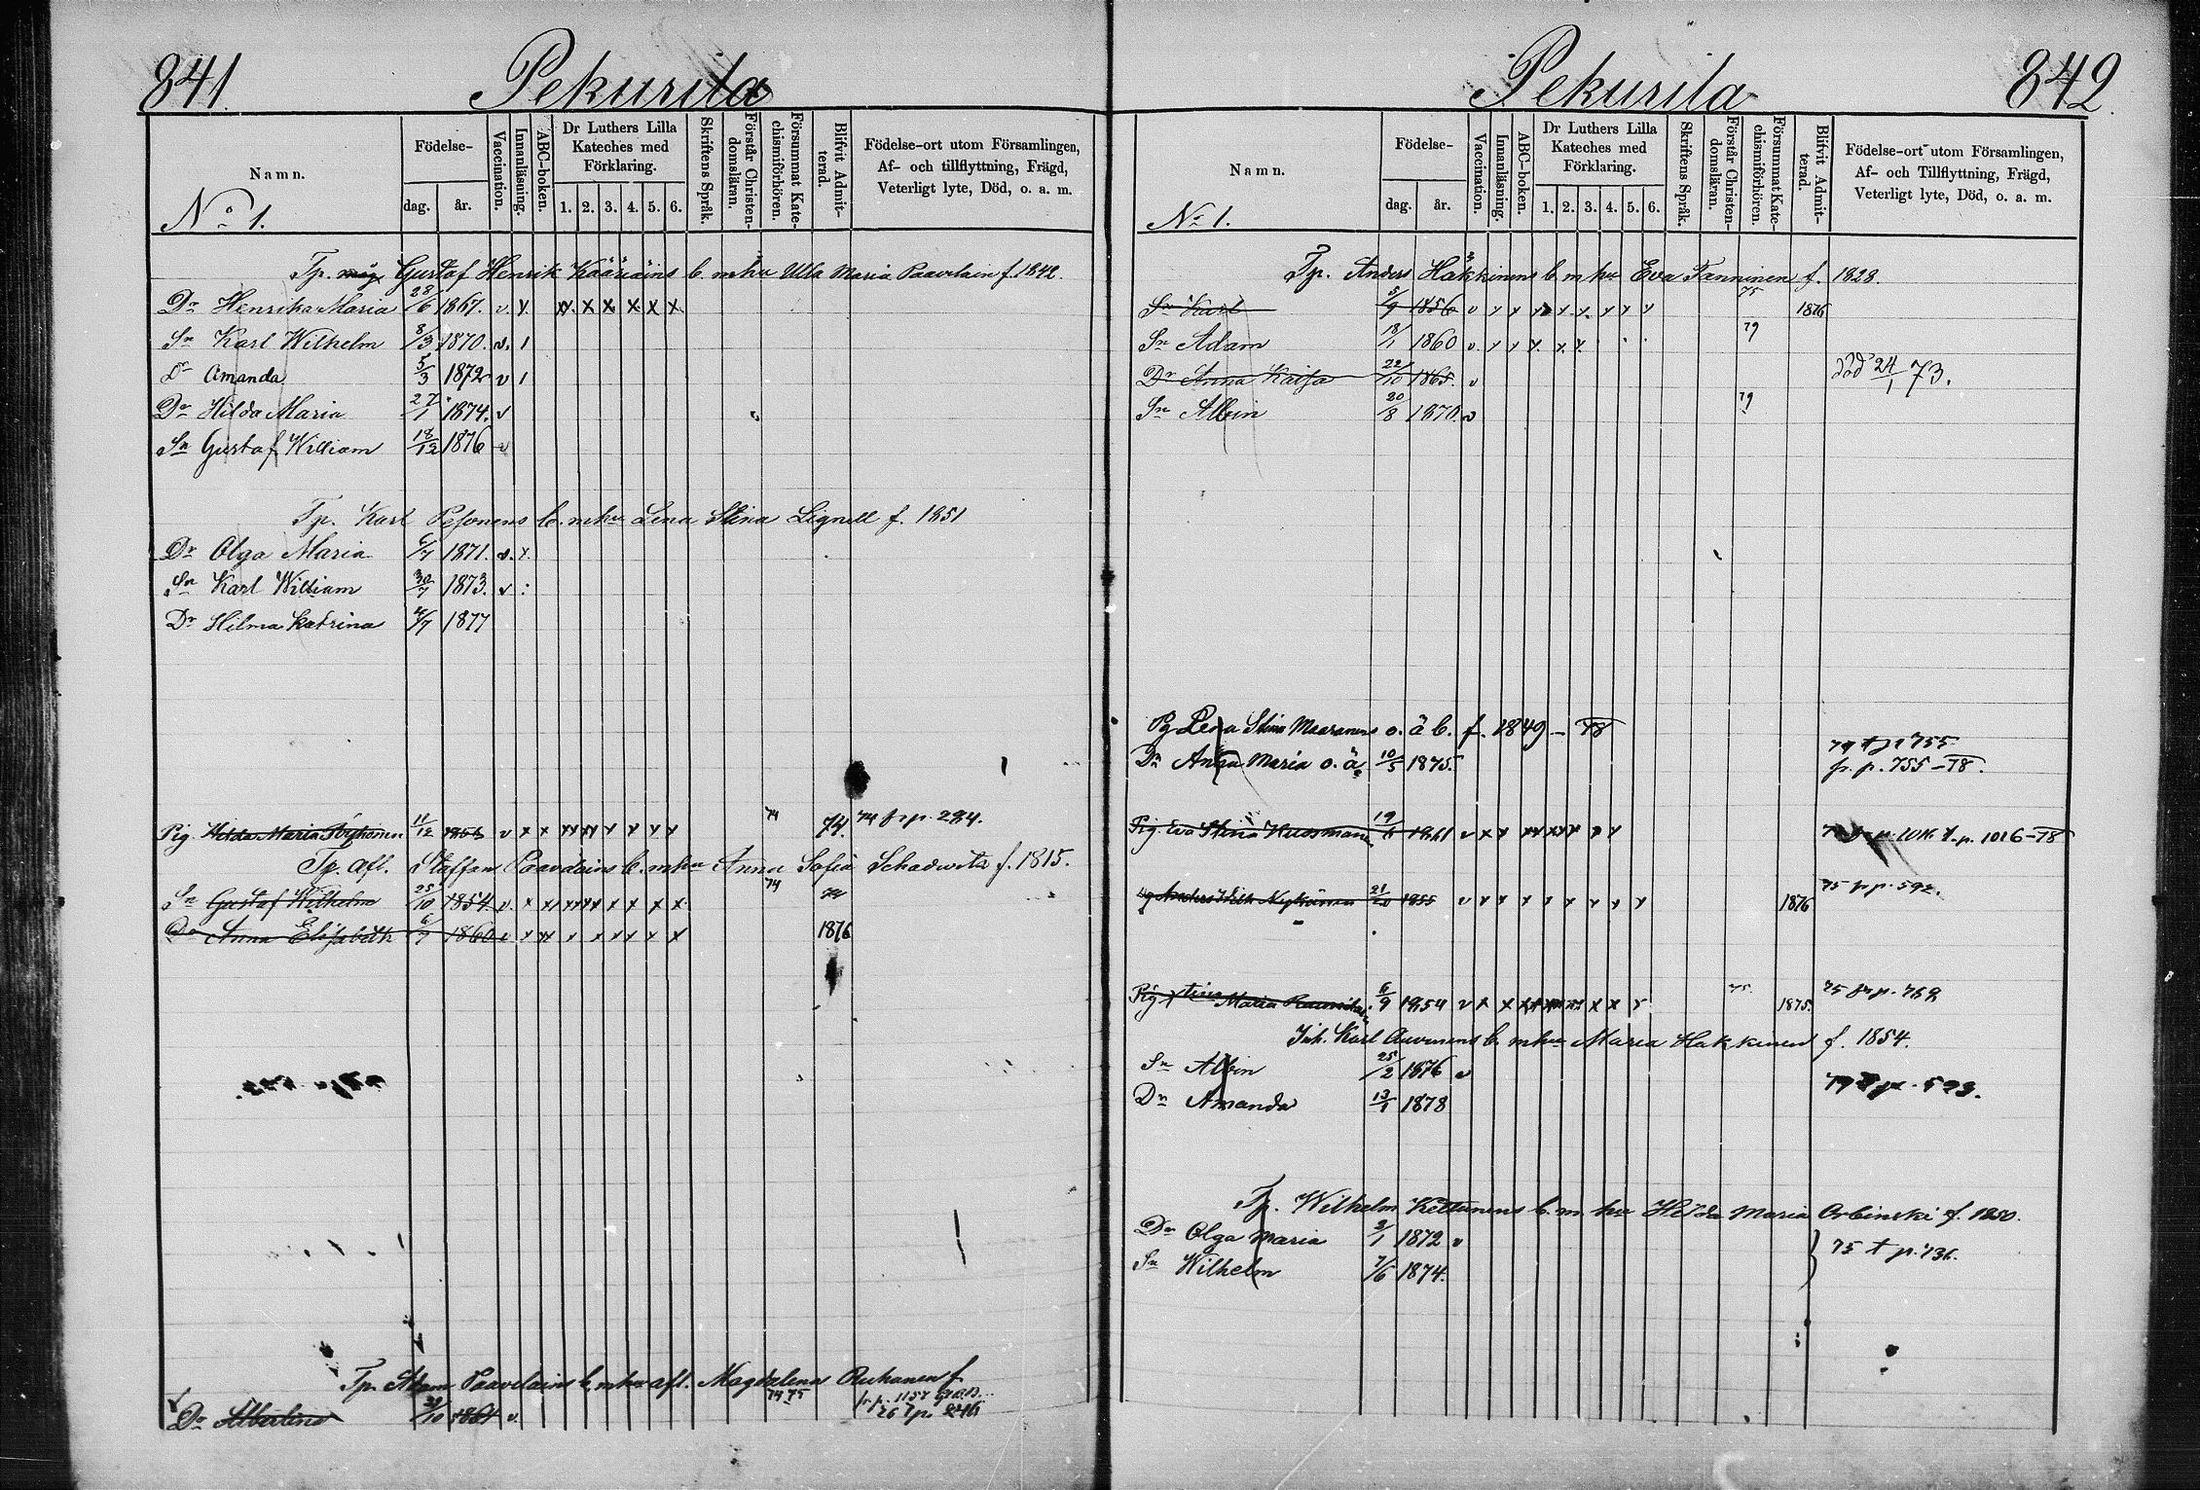 841
Pekurita
Namn.
Födelse-
dag.
år.
Vaccination.
Innanläsning.
ABC-boken.
Dr Luthers Lilla
Kateches med
Förklaring.
1. 2. 3. 4. 5. 6.
Skriftens Språk.
Förstår Christen-
domsläran.
Försummat Kate-
chismiförhören.
Blifvit Admit-
terad.
Födelse-ort utom Församlingen,
Af- och tillflyttning, Frägd,
Veterligt lyte, Död, o. a. m.
No 1.
Tp. Gustaf Henrik Kääriäins b. m hu Ulla Maria Paavelain f. 1842.
Dr Henrika Maria 28/6 1867. v x x x x x x x
Sn Karl Wilhelm 8/3 1870. v. 1
Dr Amanda 5/3 1872 v 1
Dr Hilda Maria 27/1 1874. v
Sn Gustaf William 18/12 1876 v
Tp. Karl Pesonens b. m hu Lena Stina Lignell f. 1851
Dr Olga Maria 6/7 1871. v. x.
Sn Karl William 30/7 1873. v :
Dr Hilma Katrina 4/7 1877
Pig. Helda Maria 11/12 v x x xx xx x x x x 74 74. 74 fr p. 284.
Tp. afl. Staffan Paavelains b. m hu Anna Sofia Schadewitz f. 1815.
Sn Gustaf Wilhelm 25/10 1854 v. 74 74
Dr Anna Elisabeth 6/7 1860 v x xx x x x x x x 1876
Tp. Adam Paavelains b. m hu afl. Magdalena Ruhanen f.
Dr Albertina /10 1864 v. 74 75 fr. p. 1157
842
Pekurita
Namn.
Födelse-
dag.
år.
Vaccination.
Innanläsning.
ABC-boken.
Dr Luthers Lilla
Kateches med
Förklaring.
1. 2. 3. 4. 5. 6.
Skriftens Språk.
Förstår Christen-
domsläran.
Försummat Kate-
chismiförhören.
Blifvit Admit-
terad.
Födelse-ort utom Församlingen,
Af- och Tillflyttning, Frägd,
Veterligt lyte, Död, o. a. m.
No 1.
Tp. Anders Häkkinens b. m hu Eva Tanninen f. 1828.
Sn Karl 5/9 1856 v x x x x x x x x 75 1876
Sn Adam 18/1 1860 v. x x x. x. x. 79
Dr Anna Kaisa 22/10 1865. v död 24/1 73.
Sn Albin 20/8 1870. v 79
Pg Lena Stina Maaranens o. ä b. f. 1849 - 78
Dr Anna Maria o. ä. 10/5 1875. 79 t p 755
fr. p. 755-78.
Pig. Eva Stina Kussman 19/6 1861 v x x xx xx x x t. p. 1016-78
Anders Wilh Nykänen 21/ 1855 v x x x x x x x x 1876 75 fr p. 592.
Pig Stina Maria 6/9 1854 75. 1875. 75 fr p. 769
Inh. Karl Auvinens b. m hu Maria Häkkinen f. 1854.
Sn Albin 25/2 1876 v
Dr Amanda 13/1 1878
Tp. Wilhelm Kettunens b. m hu Helda Maria Orbinski f. 1850.
Dr Olga Maria 3/1 1872 v
Sn Wilhelm 7/6 1874. 75 t p. 736.